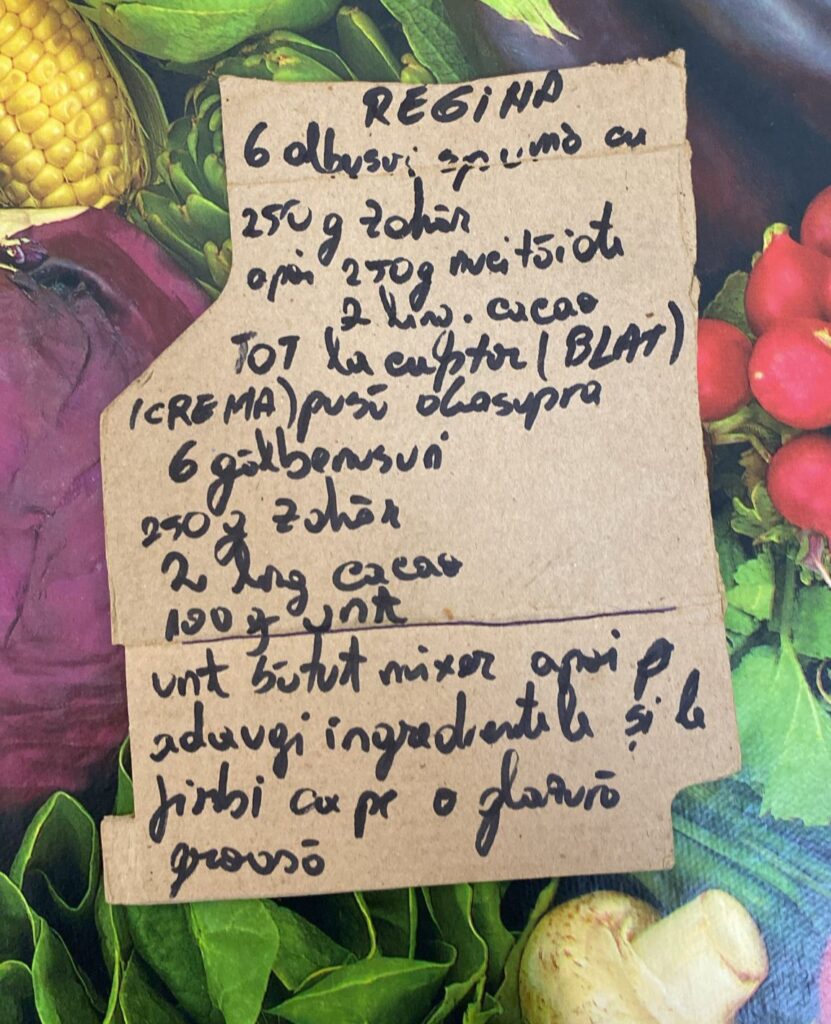 REGINA
6 albusuri spumă cu
250 g zahăr
apoi 250g nuci tăiate
2 ling. cacao
TOT la cuptor (BLAT)
(CREMA) pusă deasupra
6 gălbenusuri
250 g zahăr
2 ling cacao
100 g unt
unt bătut mixer apoi
adaugi ingredientele și le
fierbi ca pe o glazură
groasă